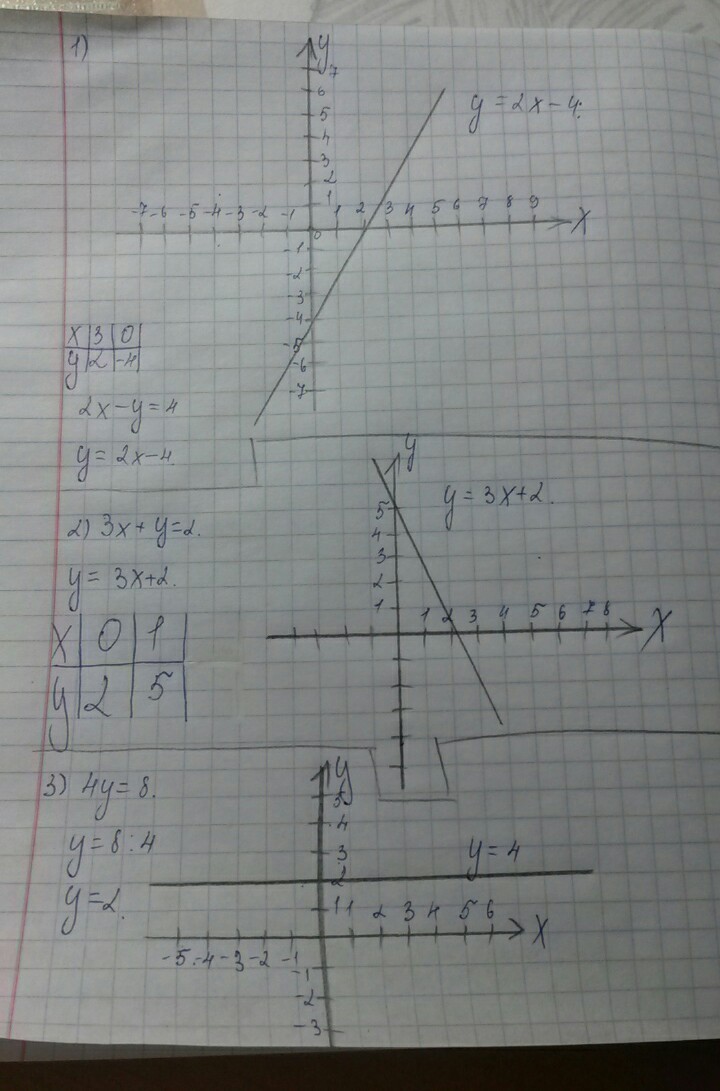 1)
y
7
6
5
4
3
2
1
y = 2x - 4.
-7 -6 -5 -4 -3 -2 -1 1 2 3 4 5 6 7 8 9 x
0
-1
-2
-3
-4
-5
-6
-7
x 3 0
y 2 -4
2x - y = 4
y = 2x - 4
2) 3x + y = 2.
y = 3x + 2.
x 0 1
y 2 5
y
y = 3x + 2.
5
4
3
2
1
1 2 3 4 5 6 7 8 x
3) 4y = 8.
y = 8 : 4
y = 2.
y
5
4
3
2
1
y = 4
1 2 3 4 5 6 x
-5 -4 -3 -2 -1
-1
-2
-3